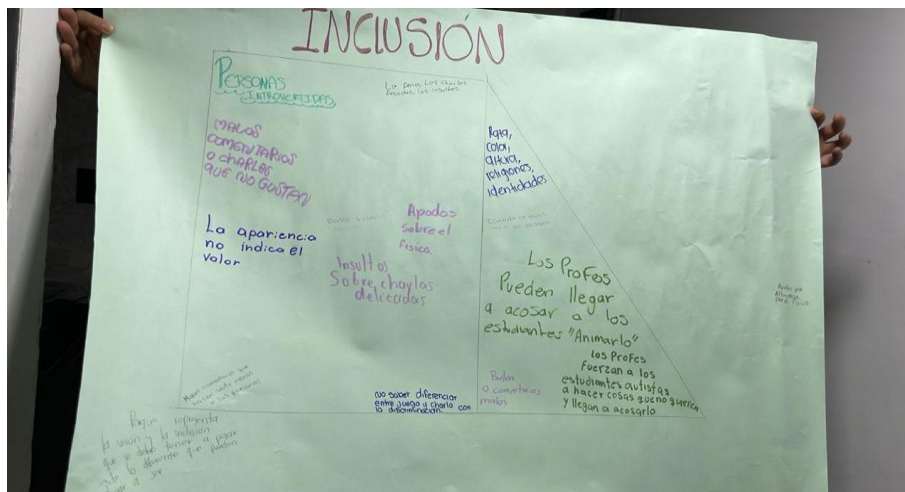 INCLUSIÓN
PERSONAS
INTROVERTIDAS
La pena, Los charlas
Pesadas, los insultos
MALOS
COMENTARIOS
O CHARLAS
QUE NO GUSTAN
Raza,
color,
altura,
religiones,
identidades
La apariencia
no indica el
valor
Apodos
sobre el
fisico.
Insultos
Sobre charlas
delicadas
Los Profes
Pueden llegar
a acosar a los
estudiantes "Animarlo"
los Profes
Fuerzan a los
estudiantes autistas
a hacer cosas que no quieren
y llegan a acosarlo
Bulan
o comentarios
malos
no saber diferenciar
entre juego y charla con
la discriminación
representa
la unión y la inclusión
que se debe tener a pesar
de lo diferente que puedan
ser